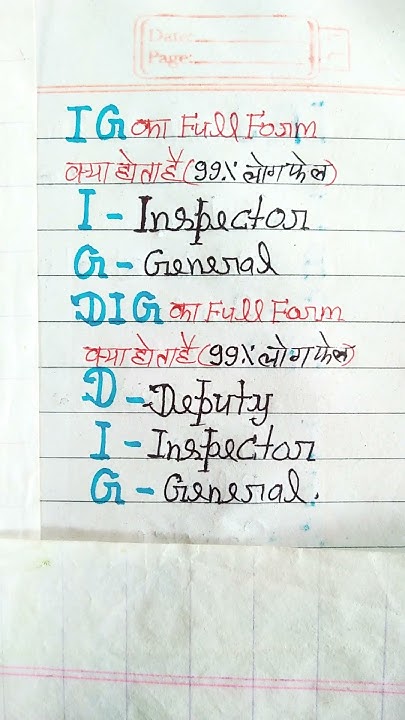 Date:
Page:
IG का Full Form
क्या होता है (99% लोग फेल)
I - Inspector
G - General
DIG का Full Form
क्या होता है (99% लोग फेल)
D - Deputy
I - Inspector
G - General.